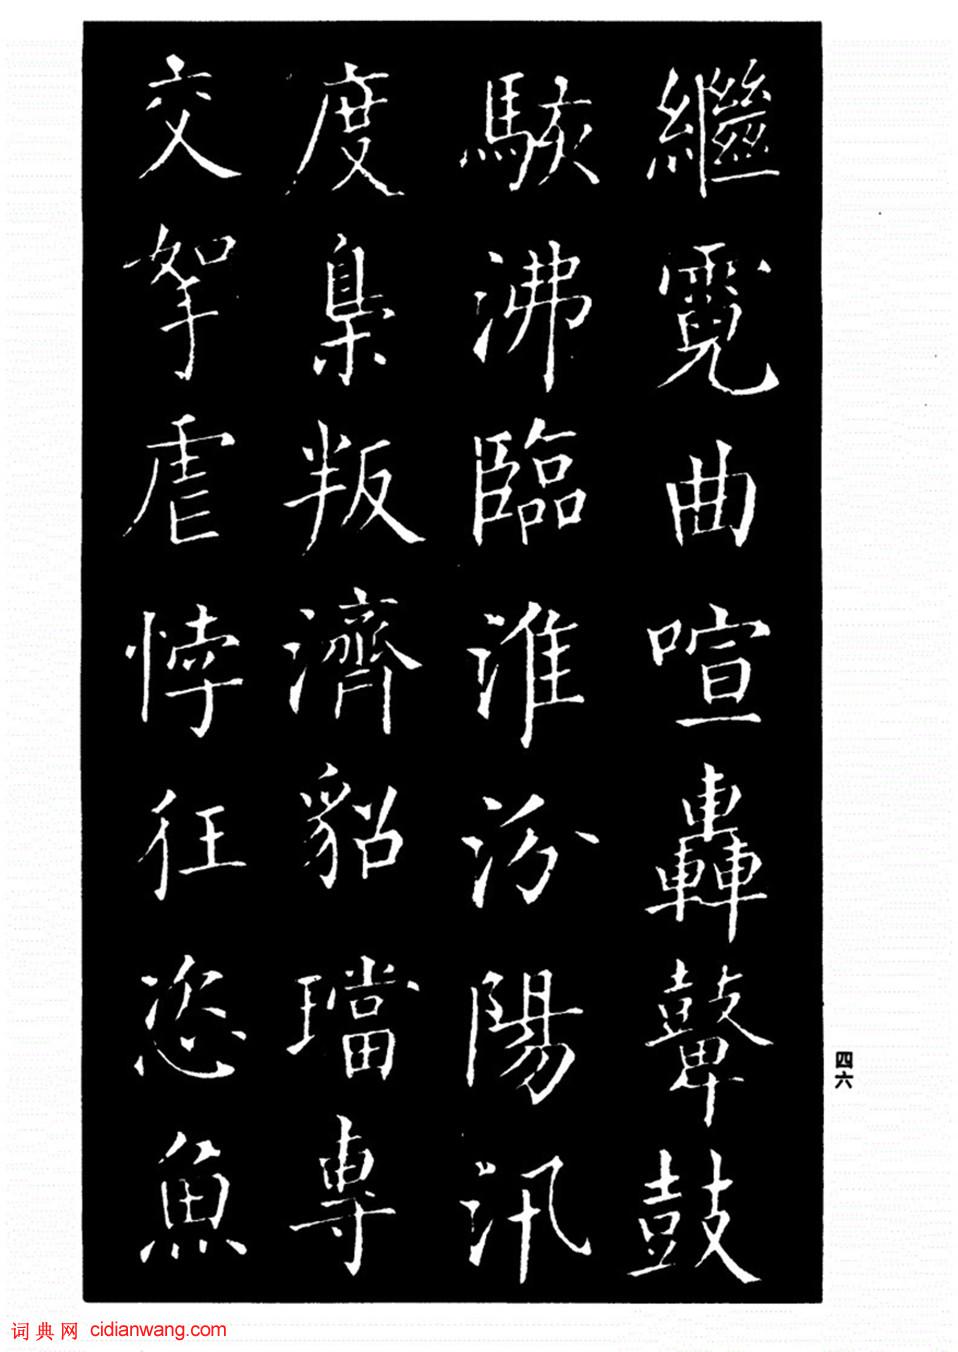 繼霓曲喧轟鼙鼓
駭沸臨淮汾陽汛
度梟叛濟貂璫専
交拏虐悖狂恣魚
四六
词典网 cidianwang.com